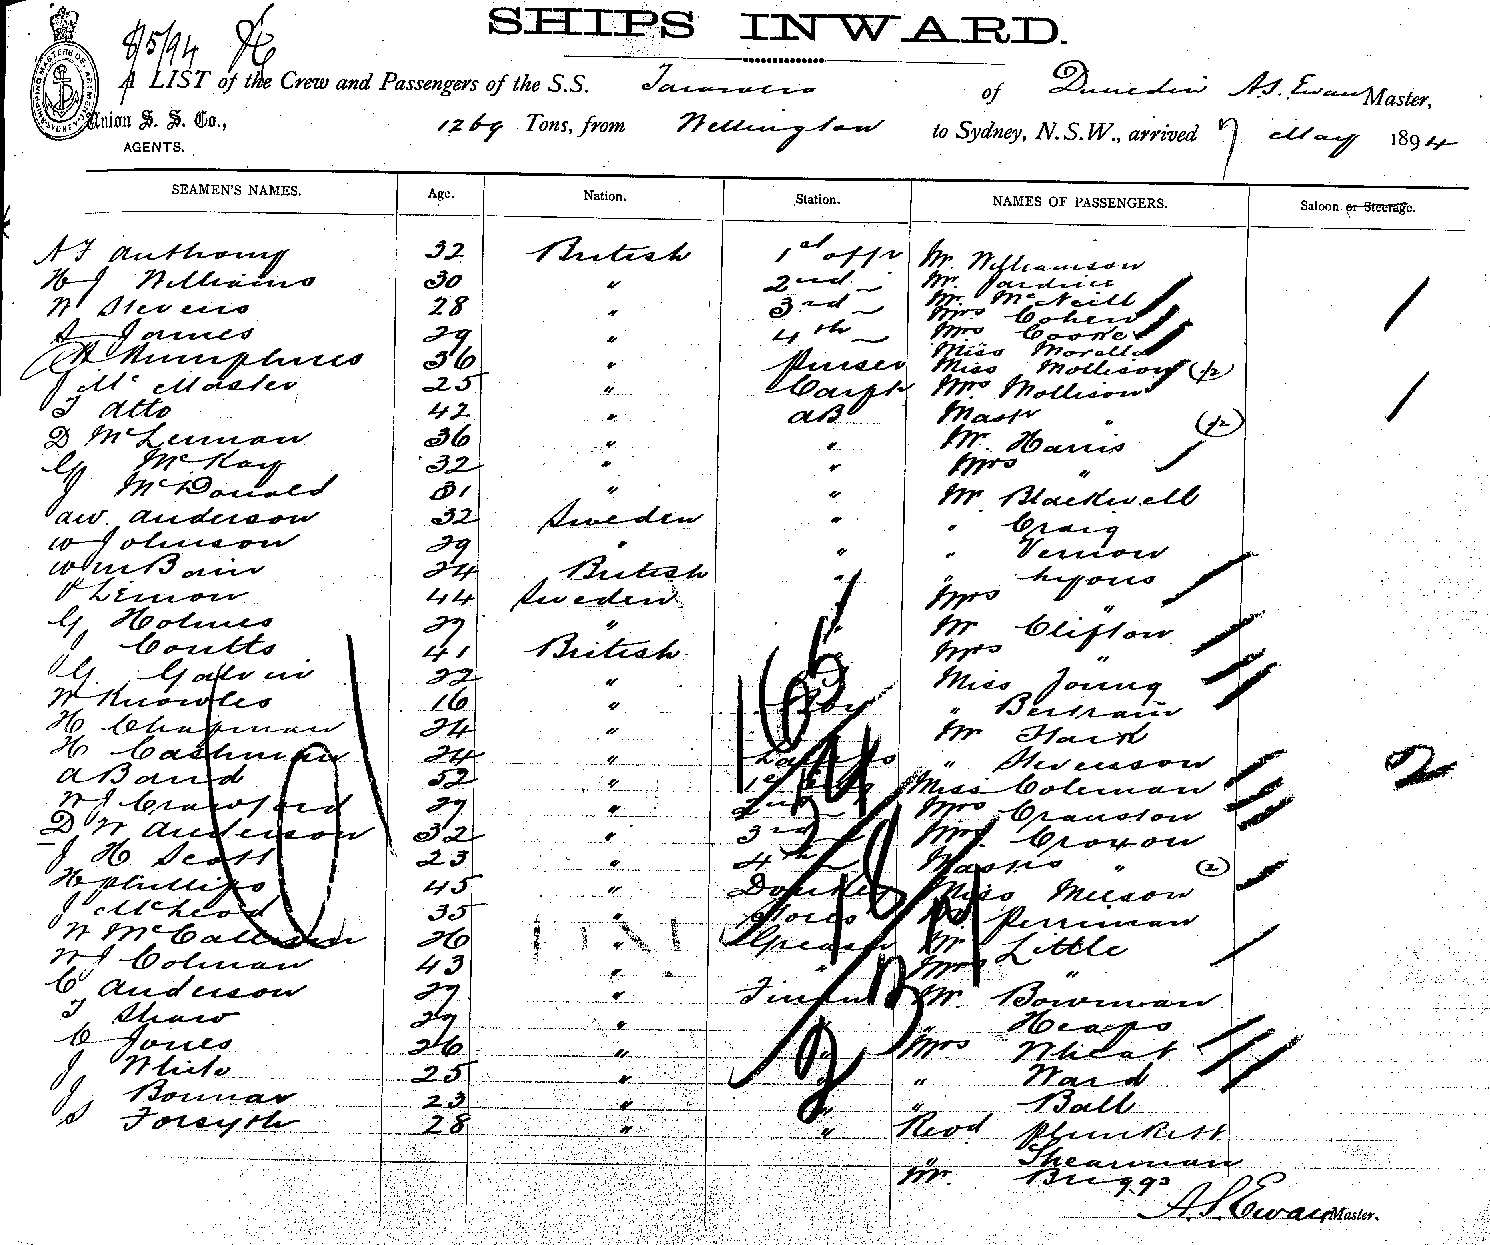 SHIPS INWARD.
8/5/94
A LIST of the Crew and Passengers of the S.S. Tarawera of Dunedin A.S. Ewan Master,
Union S. S. Co., 1269 Tons, from Wellington to Sydney, N.S.W., arrived 7 May 1894
AGENTS.
SEAMEN'S NAMES. Age. Nation. Station. NAMES OF PASSENGERS. Saloon or Steerage.
A F Anthony 32 British 1st offr Mr. Williamson
H J Williams 30 " 2nd " Mr. Jardine
W Stevens 28 " 3rd " Mr. McNeill
Mrs Cohen
S James 29 " 4th " Mrs Cooke
Miss Morella
H Humphries 36 " Purser Miss Mollison (1/2)
J McMaster 25 " Carptr Mrs Mollison
T Atto 42 " AB Mastr " (1/2)
D McLennan 36 " " Mr. Harris
G McKay 32 " " Mrs "
J McDonald 31 " " Mr Blackwell
AW. Anderson 32 Sweden " " Craig
W Johnson 29 " " " Vernon
Wm Bain 24 British " " Lyons
P Lemon 44 Sweden Mrs "
G Holmes 27 " Mr Clifton
J Coutts 41 British Mrs "
G Galvin 22 " Miss Young
W Knowles 16 " Boy " Bertram
H Chapman 24 " Mr Hack
H Cashman 24 " Lamps " Stevenson
A Baud 52 " 1st Miss Coleman
W J Crawford 27 " 2nd Mrs Cranston
D W Anderson 32 " 3rd Mrs. Croxon
J H Scott 23 " 4th Mastrs " (2)
H Phillips 45 " Donkey Miss Meeson
J McLeod 35 " Stores Perriman
W McCallum 26 " Greaser Mr Little
W J Colman 43 " " Mrs "
C Anderson 27 " Fireman Mr. Bowman
T Shaw 29 " " Heaps
C Jones 26 " " Mrs Wheat
J White 25 " " " Ward
J Bonnar 23 " " " Ball
S Forsyth 28 " " Revd Plunkett
" Shearman
Mr. Briggs
A.S. Ewan Master.
2